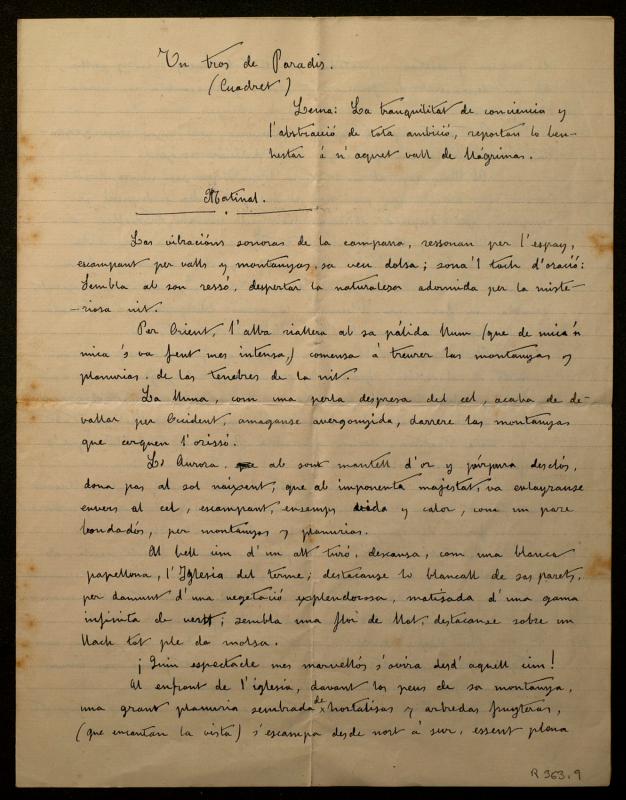 Un tros de Paradis.
(Cuadret)
Lema: La tranquilitat de conciencia y
l'abstracció de tota ambició, reportan lo ben-
hestar á n'aquet vall de llágrimas.
Matinal.
Las vibracións sonoras de la campana, ressonan per l'espay,
escampant per valls y montanyas sa veu dolsa; sona'l toch d'oració:
Sembla al son ressó, despertar la naturalesa adormida per la miste-
-riosa nit.
Per Orient, l'alba riallera ab sa pálida llum (que de mica'n
mica 's va fent mes intensa,) comensa á treurer las montanyas y
planurias de las tenebres de la nit.
La lluna, com una perla despresa del cel, acaba de de-
vallar per Occident, amaganse avergonyida, darrere las montanyas
que cerquen l'orissó.
L' Aurora, ab sont mantell d'or y púrpura desclós,
dona pas al sol naixent, que ab imponenta majestat, va enlayranse
envers al cel, escampant, ensemps vida y calor, com un pare
bondadós, per montanyas y planurias.
Al bell cim d'un alt turó, descansa, com una blanca
papellona, l'Iglesia del terme; destacanse lo blancall de sas parets,
per damunt d'una vegetació explendorosa, matisada d'una gama
infinita de vert; sembla una flor de llot, destacanse sobre un
llach tot ple de molsa.
¡Quin espectacle mes marvellós s'ovira desd' aquell cim!
Al enfront de l'iglesia, davant los peus de sa montanya,
una grant planuria sembrada de hortalisas y arbredas fruyteras,
(que encantan la vista) s'escampa desde nort á sur, essent plena
R 363.9